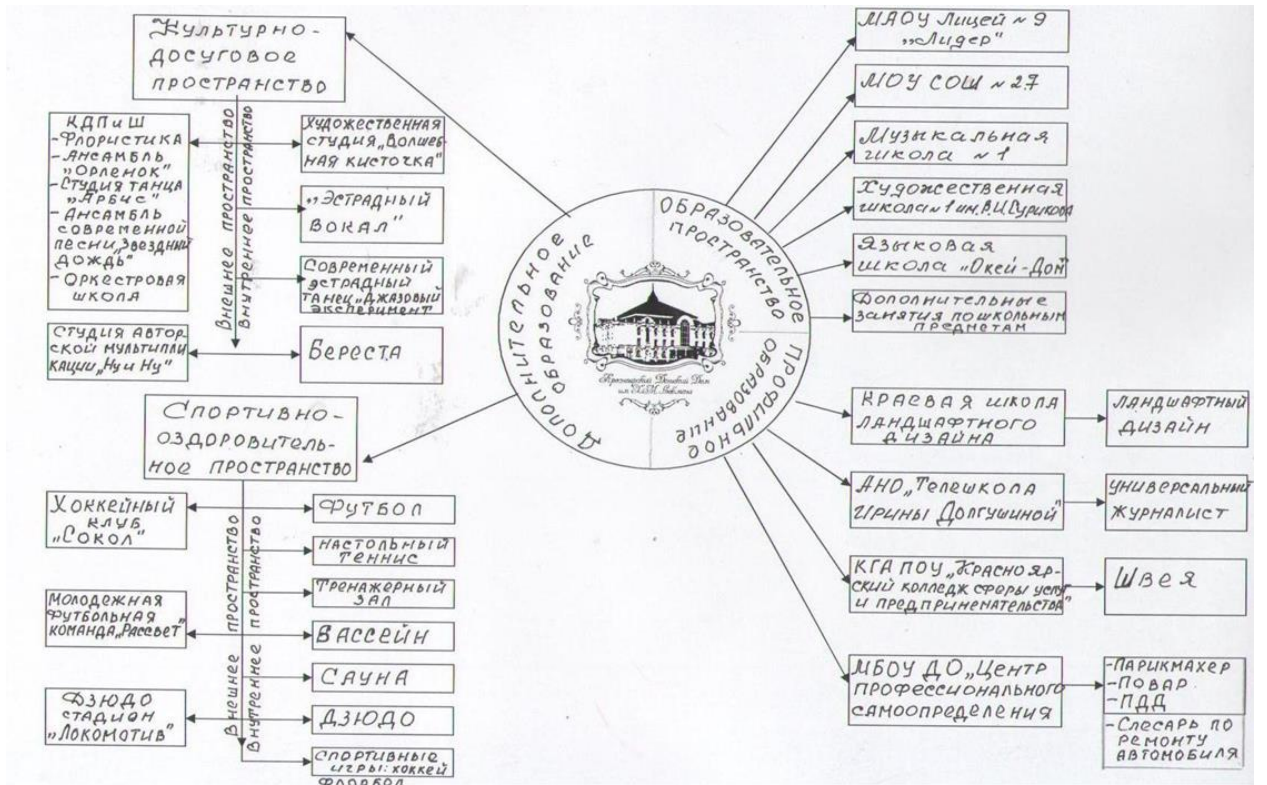 Культурно-
досуговое
пространство
Внешнее пространство
Внутреннее пространство
КДПиШ
-Флористика
-Ансамбль
„Орленок"
-Студия танца
„Арбис"
-Ансамбль
современной
песни „Звездный
дождь"
-Оркестровая
школа
Студия автор-
ской мультипли
кации „Ну и Ну"
Художественная
студия „Волшеб-
ная кисточка"
„Эстрадный
вокал"
Современный
эстрадный
танец „Джазовый
эксперимент"
Береста
Спортивно-
оздоровитель-
ное пространство
Внешнее пространство
Внутреннее пространство
Хоккейный
клуб
„Сокол"
Молодежная
футбольная
команда „Рассвет"
Дзюдо
стадион
„Локомотив"
Футбол
Настольный
теннис
Тренажерный
зал
Бассейн
Сауна
Дзюдо
Спортивные
игры: хоккей
флорбол
Дополнительное
образование
Образовательное
пространство
Профильное
образование
Детский Дом
МАОУ Лицей №9
„Лидер"
МОУ СОШ №27
Музыкальная
школа №1
Художественная
школа №1 им. В.И. Сурикова
Языковая
школа „Окей-Дом"
Дополнительные
занятия по школьным
предметам
Краевая школа
ландшафтного
дизайна
Ландшафтный
дизайн
АНО „Телешкола
Ирины Долгушиной"
Универсальный
журналист
КГА ПОУ „Краснояр-
ский колледж сферы услуг
и предпринемательства"
Швея
МБОУ ДО „Центр
профессионального
самоопределения
-Парикмахер
-Повар
-ПДД
-Слесарь по
ремонту
автомобиля